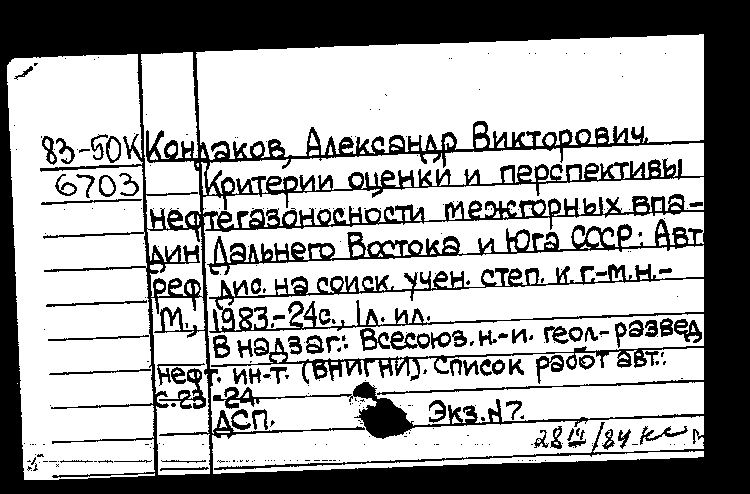 83-50К Кондаков, Александр Викторович.
6703 Критерии оценки и перспективы
нефтегазоносности межгорных впа-
дин Дальнего Востока и Юга СССР: Авт
реф. дис. на соиск. учен. степ. к. г.-м.н.-
М., 1983.-24с., 1л. ил.
В надзаг.: Всесоюз. н.-и. геол-развед
нефт. ин-т. (ВНИГНИ). Список работ авт.:
с.23-24.
ДСП. Экз.№7.
28 III/84